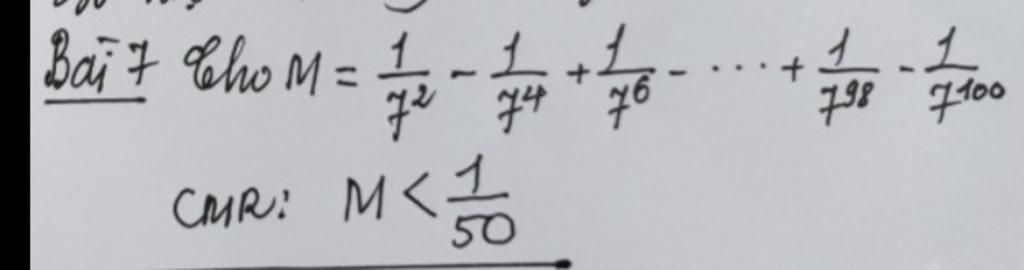 Bài 7 Cho M = 1/7² - 1/7⁴ + 1/7⁶ - ... + 1/7⁹⁸ - 1/7¹⁰⁰
CMR: M < 1/50